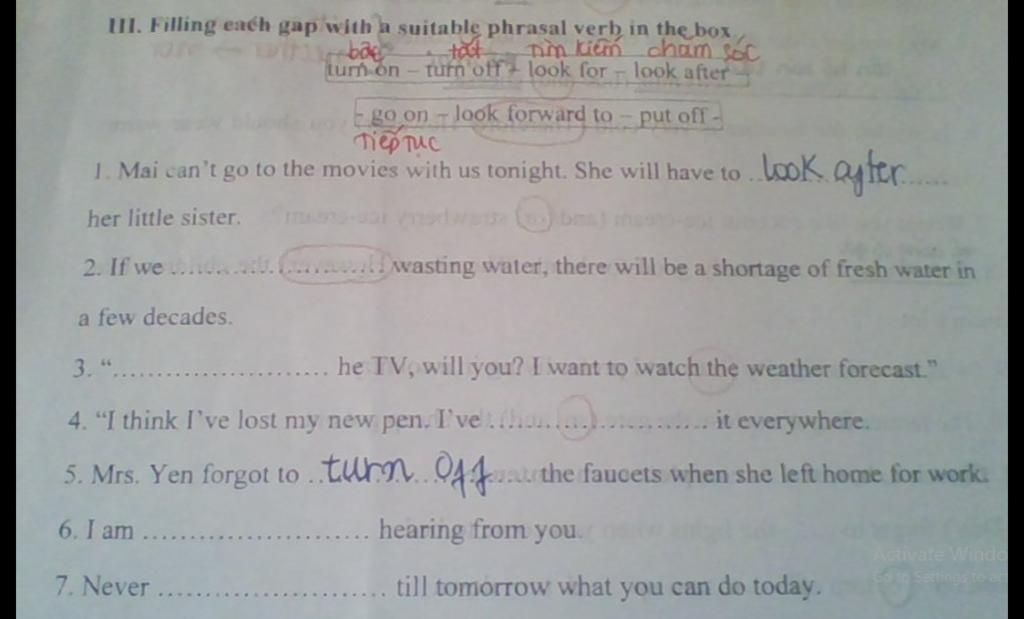 III. Filling each gap with a suitable phrasal verb in the box
bật tắt tìm kiếm chăm sóc
turn on – turn off – look for – look after
- go on – look forward to – put off -
Tiếp tục
1. Mai can't go to the movies with us tonight. She will have to ..look after......
her little sister.
2. If we ........................ wasting water, there will be a shortage of fresh water in
a few decades.
3. “........................ he TV, will you? I want to watch the weather forecast.”
4. “I think I've lost my new pen. I've ........................ it everywhere.
5. Mrs. Yen forgot to ..turn off...... the faucets when she left home for work.
6. I am ........................ hearing from you.
7. Never ........................ till tomorrow what you can do today.
Activate Windo
Go to Settings to ac